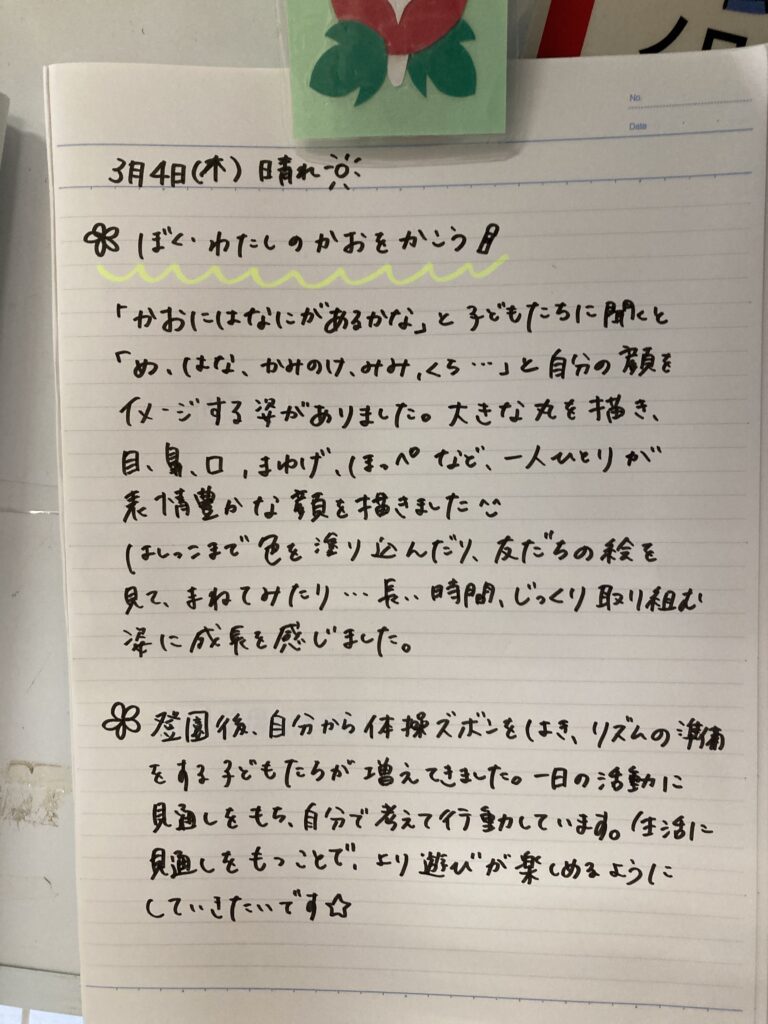 ノロ
No.
Date
3月4日(木) 晴れ
ぼく・わたしのかおをかこう
「かおにはなにがあるかな」と子どもたちに聞くと
「め、はな、かみのけ、みみ、くち…」と自分の顔を
イメージする姿がありました。大きな丸を描き、
目、鼻、口、まゆげ、ほっぺなど、一人ひとりが
表情豊かな顔を描きました
はしっこまで色を塗り込んだり、友だちの絵を
見て、まねてみたり…長い時間、じっくり取り組む
姿に成長を感じました。
登園後、自分から体操ズボンをはき、リズムの準備
をする子どもたちが増えてきました。一日の活動に
見通しをもち、自分で考えて行動しています。生活に
見通しをもつことで、より遊びが楽しめるように
していきたいです☆